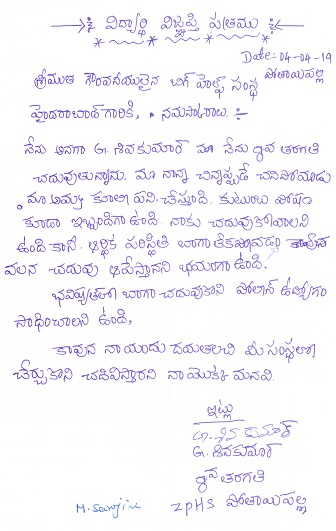 విద్యార్థి విజ్ఞప్తి పత్రము
Date:- 04-04-19
పోతాయిపల్లి
శ్రీయుత గౌరవనీయులైన బిగ్ హెల్ప్ సంస్థ
హైదరాబాద్ గారికి, నమస్కారాలు :-
నేను అనగా G. శివకుమార్ నేను 9వ తరగతి
చదువుతున్నాను. మా నాన్న చిన్నప్పుడే చనిపోయాడు
మా అమ్మ కూలీ పని చేస్తుంది. కుటుంబ పోషణ
కూడా ఇబ్బందిగా ఉంది. నాకు చదువుకోవాలని
ఉంది కానీ. ఆర్థిక పరిస్థితి బాగా లేకపోవడం
వలన చదువు ఆపేస్తానని భయంగా ఉంది.
భవిష్యత్తులో బాగా చదువుకొని పోలీస్ ఉద్యోగం
సాధించాలని ఉంది,
కావున నా యందు దయతలచి మీ సంస్థలో
చేర్చుకొని చదివిస్తారని నా యొక్క మనవి.
ఇట్లు
G. శివ కుమార్
G. శివకుమార్
9వ తరగతి
M. Sarojini ZPHS పోతాయిపల్లి